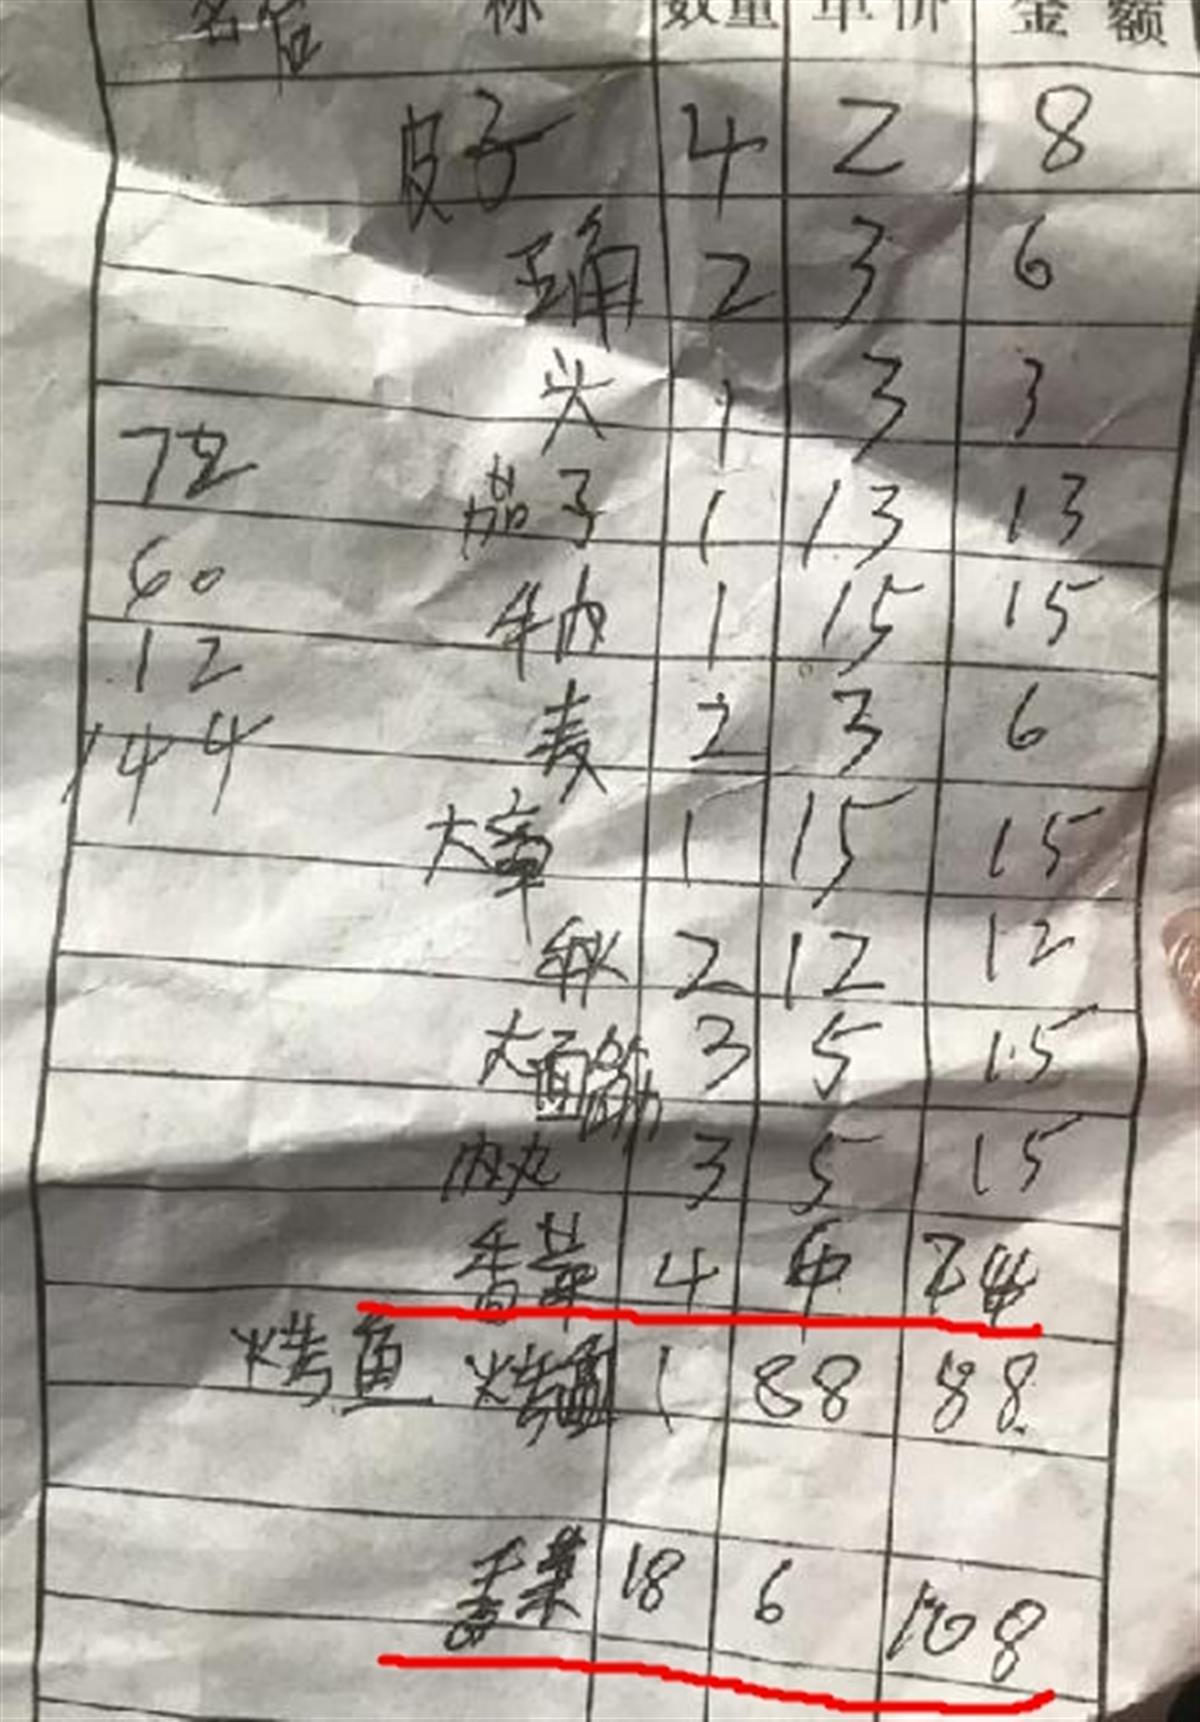 名 称 数量 单价 金额
皮子 4 2 8
玉角 2 3 6
头 1 3 3
72
茄子 1 13 13
60
牛肉 1 15 15
12
麦 2 3 6
144
大章 1 15 15
2 12 12
大面筋 3 5 15
肉丸 3 5 15
香菜 4 6 24
烤鱼 烤鱼 1 88 88
18 6 108